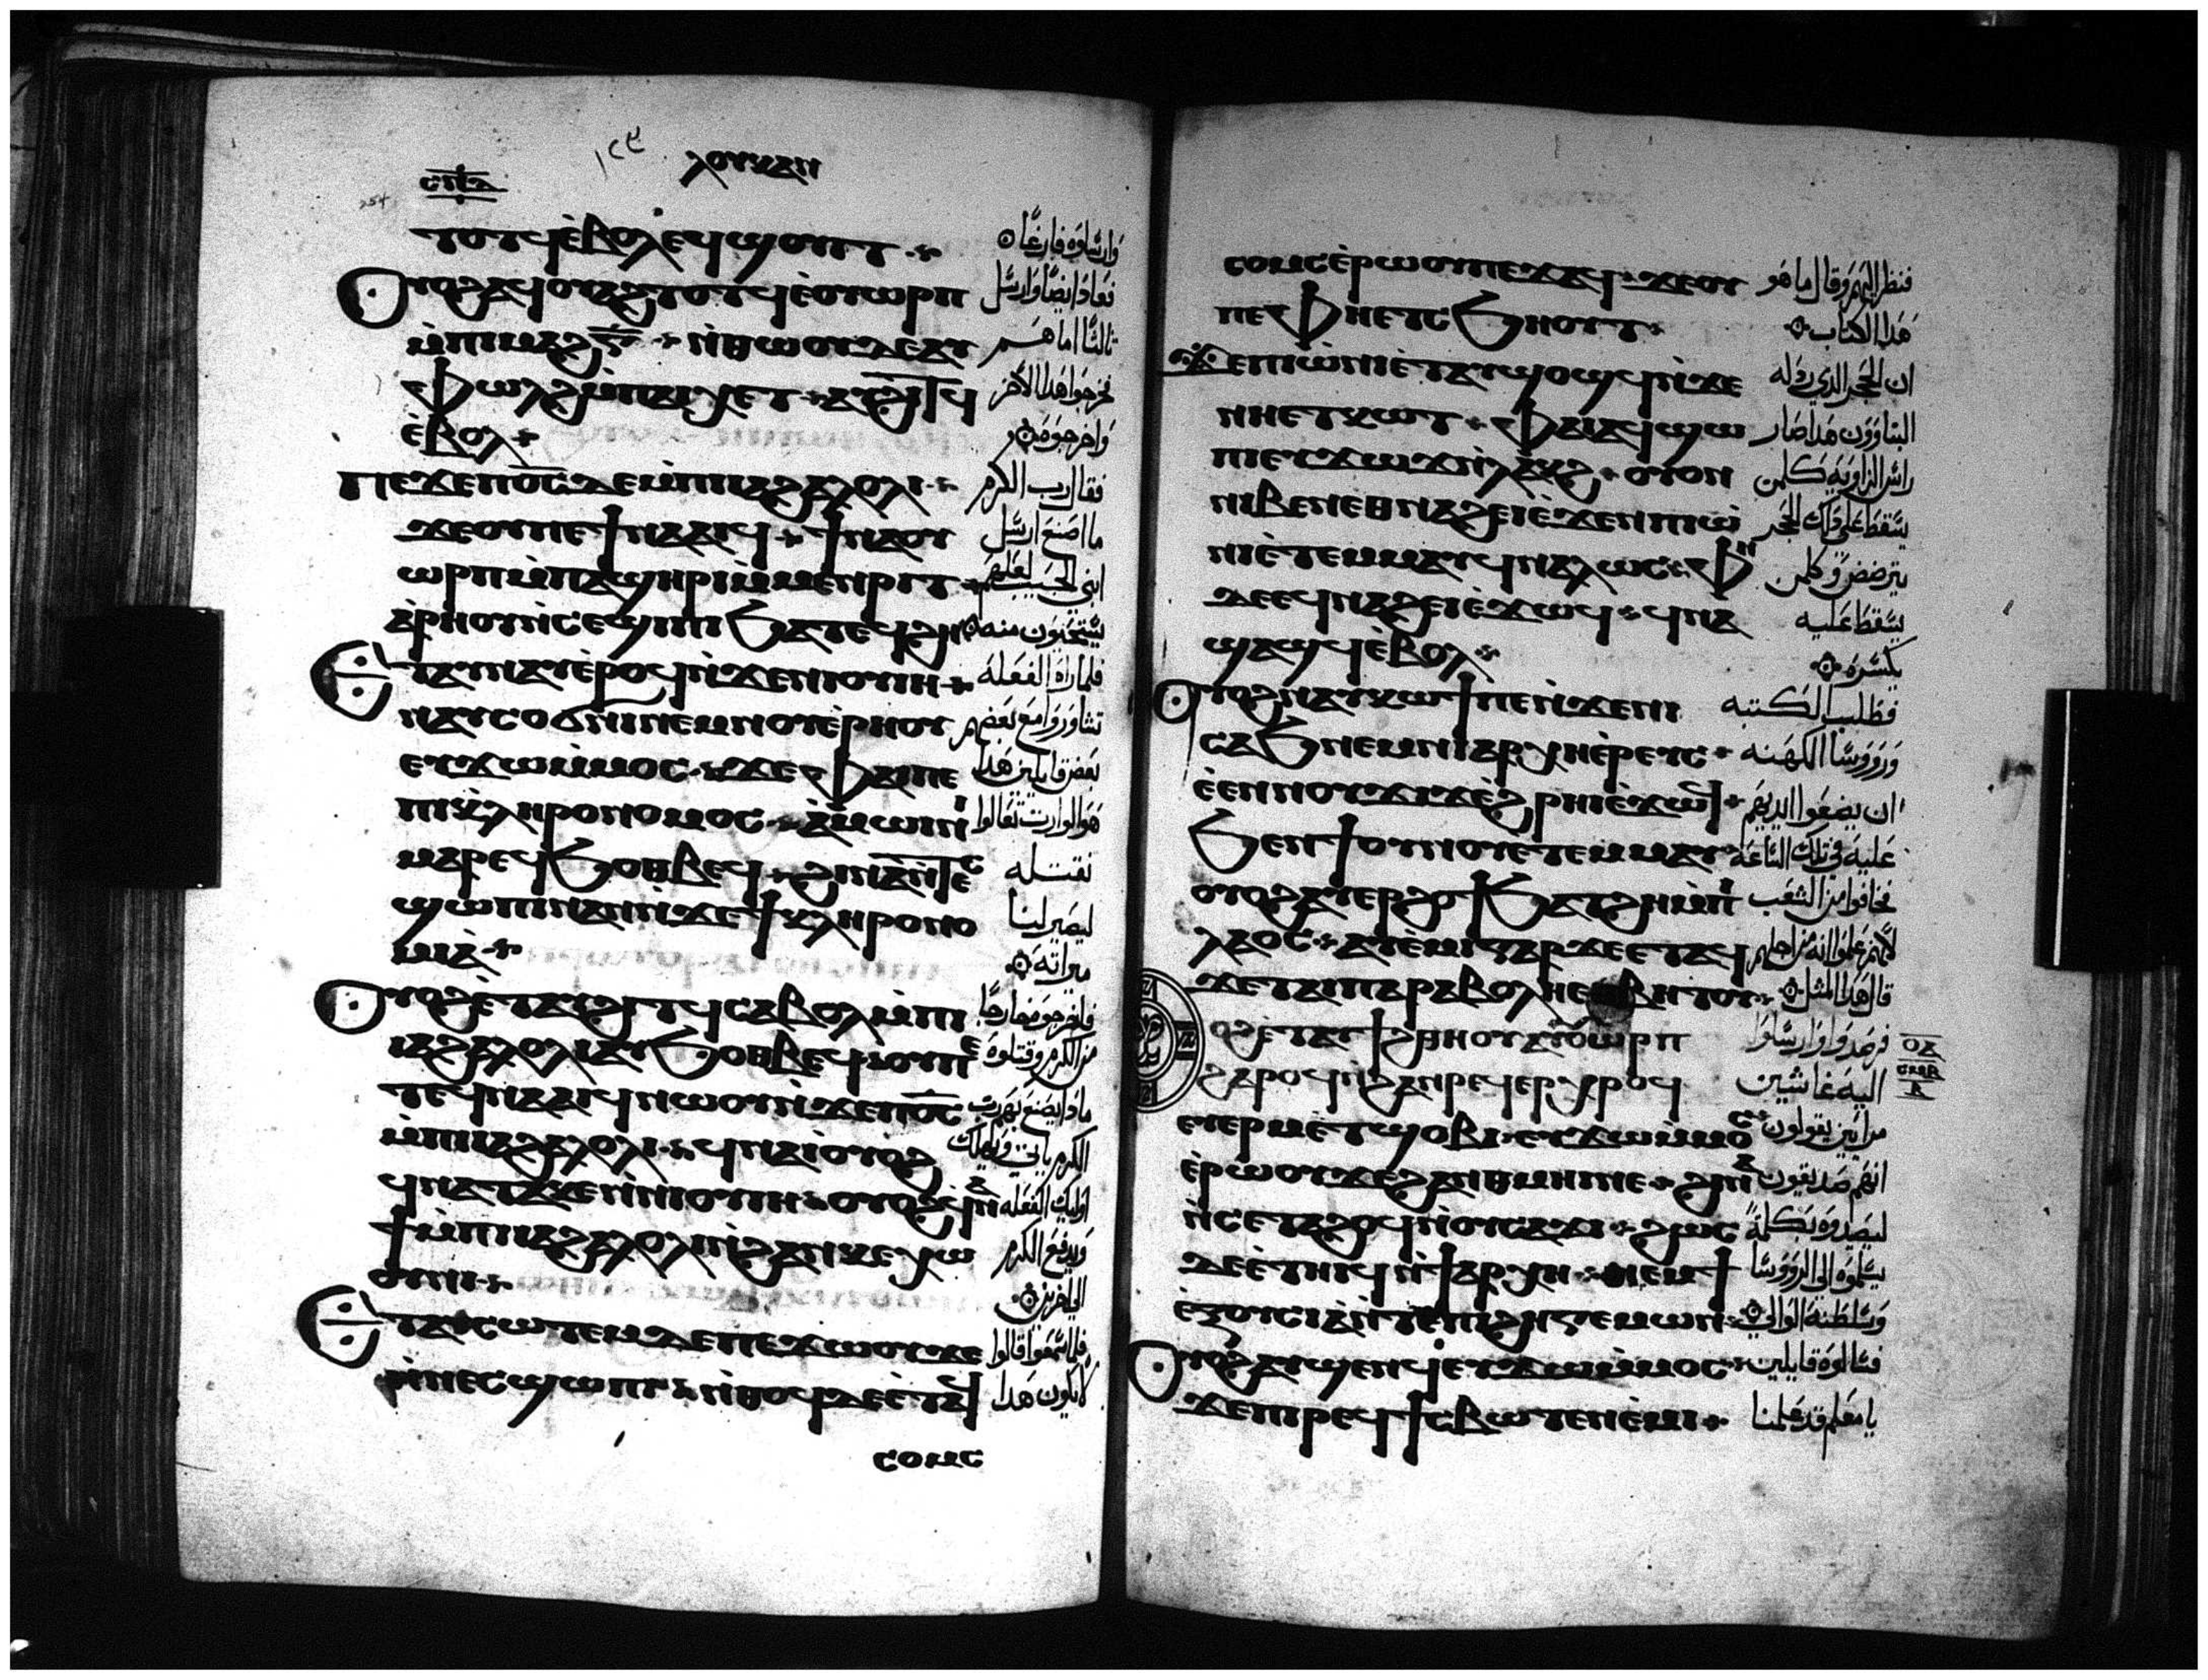 ⲗⲟⲩⲕⲁⲛ
ⲧⲟⲧϥ ⲉ̀ⲃⲟⲗ ⲉϥϣⲟⲩⲓⲧ
ⲟⲩⲟϩ ⲁϥⲟⲩⲁϩⲧⲟⲧϥ ⲉ̀ⲟⲩⲱⲣⲡ
ⲙ̀ⲡⲓⲙⲁϩⲅ̅ ⲛ̀ⲑⲱⲟⲩ ⲇⲉ ⲁⲩ
ⲫⲱⲗϩ ⲙ̀ⲡⲁⲓⲭⲉⲧ ⲁⲩϩⲓⲧϥ
ⲉ̀ⲃⲟⲗ
ⲡⲉϫⲉ ⲡⲟ̅ⲥ̅ ⲇⲉ ⲙ̀ⲡⲓⲓⲁϩⲁⲗⲟⲗⲓ
ϫⲉ ⲟⲩ ⲡⲉϯⲛⲁⲁⲓϥ ϯⲛⲁⲟⲩ
ⲱⲣⲡ ⲙ̀ⲡⲁϣⲏⲣⲓ ⲙ̀ⲙⲉⲛⲣⲓⲧ
ⲁ̀ⲣⲏⲟⲩ ⲛ̀ⲥⲉϣⲓⲡⲓ ϧⲁⲧⲉϥϩⲏ
ⲉⲧⲁⲩⲛⲁⲩ ⲉ̀ⲣⲟϥ ⲛ̀ϫⲉ ⲛⲓⲟⲩⲓⲏ
ⲛⲁⲩⲥⲟϭⲛⲓ ⲛⲉⲙ ⲛⲟⲩⲉ̀ⲣⲏⲟⲩ
ⲉⲩϫⲱ ⲙ̀ⲙⲟⲥ ϫⲉ ⲫⲁⲓ ⲡⲉ
ⲡⲓⲕⲗⲏⲣⲟⲛⲟⲙⲟⲥ ⲁ̀ⲙⲱⲓⲛⲓ
ⲙⲁⲣⲉⲛϧⲟⲑⲃⲉϥ ϩⲓⲛⲁ ⲛ̀ⲧⲉⲥ
ϣⲱⲡⲓ ⲛⲁⲛ ⲛ̀ϫⲉ ϯⲕⲗⲏⲣⲟⲛⲟ
ⲙⲓⲁ̀
ⲟⲩⲟϩ ⲉ̀ⲧⲁⲩϩⲓⲧϥ ⲥⲁⲃⲟⲗ ⲙ̀ⲡⲓ
ⲓⲁϩⲁⲗⲟⲗⲓ ⲁⲩϧⲟⲑⲃⲉϥ ⲟⲩ ⲡⲉ
ⲧⲉϥⲛⲁⲁⲓϥ ⲛⲱⲟⲩ ⲛ̀ϫⲉ ⲡⲟ̅ⲥ̅
ⲙ̀ⲡⲓⲓⲁϩⲁⲗⲟⲗⲓ ϥⲛⲁⲓ̀ ⲟⲩⲟϩ
ϥⲛⲁⲧⲁⲕⲉ ⲛⲓⲟⲩⲓⲏ ⲟⲩⲟϩ ϥⲛⲁ
ϯ ⲙ̀ⲡⲓⲓⲁϩⲁⲗⲟⲗⲓ ⲛ̀ϩⲁⲛⲕⲉⲭⲱ
ⲟⲩⲛⲓ
ⲉⲧⲁⲩⲥⲱⲧⲉⲙ ⲇⲉ ⲡⲉϫⲱⲟⲩ ϫⲉ
ⲛ̀ⲛⲉⲥϣⲱⲡⲓ ⲛ̀ⲑⲟϥ ⲇⲉ ⲉ̀ⲧⲁϥ
ⲥⲟⲙⲥ
وارسلوه فارغا
فعاد ايضا وارسل
ثالثا اما هم
فجرحوا هذا الاخر
واخرجوه
فقال رب الكرم
ما اصنع ارسل
ابني الحبيب لعلهم
يستحيون منه
فلما راه الفعله
تشاوروا مع بعضهم
بعض قايلين هذا
هو الوارث تعالوا
نقتله
ليصير لنا
ميراثه
فاخرجوه خارجا
من الكرم وقتلوه
ماذا يصنع بهم رب
الكرم ياتي ويهلك
اوليك الفعله
ويدفع الكرم
الي اخرين
فلما سمعوا قالوا
لا يكون هذا
ⲥⲟⲙⲥ ⲉ̀ⲣⲱⲟⲩ ⲡⲉϫⲁϥ ϫⲉ ⲟⲩ
ⲡⲉ ⲫⲏⲉⲧⲥϧⲏⲟⲩⲧ
ϫⲉ ⲡⲓⲱ̀ⲛⲓ ⲉ̀ⲧⲁⲩϣⲟϣϥ ⲛ̀ϫⲉ
ⲛⲏⲉⲧⲕⲱⲧ ⲫⲁⲓ ⲁϥϣⲱ
ⲡⲓ ⲉⲩϫⲱϫ ⲛ̀ⲗⲁⲕϩ ⲟⲩⲟⲛ
ⲛⲓⲃⲉⲛ ⲉⲑⲛⲁϩⲉⲓ ⲉ̀ϫⲉⲛ ⲡⲓⲱ̀
ⲛⲓ ⲉ̀ⲧⲉⲙⲙⲁⲩ ϥⲛⲁⲗⲱⲥ ⲫⲏ
ⲇⲉ ⲉϥⲛⲁϩⲉⲓ ⲉ̀ϫⲱϥ ϥⲛⲁ
ϣⲁϣϥ ⲉ̀ⲃⲟⲗ
ⲟⲩⲟϩ ⲛⲁⲩⲕⲱϯ ⲡⲉ ⲛ̀ϫⲉ ⲛⲓ
ⲥⲁϧ ⲛⲉⲙ ⲛⲓⲁⲣⲭⲏⲉ̀ⲣⲉⲩⲥ
ⲉ̀ⲉⲛ ⲛⲟⲩϫⲓϫ ⲉ̀ϩⲣⲏⲓ ⲉ̀ϫⲱϥ
ϧⲉⲛ ϯⲟⲩⲛⲟⲩ ⲉⲧⲉⲙⲙⲁⲩ
ⲟⲩⲟϩ ⲁⲩⲉⲣϩⲟϯ ϧⲁⲧϩⲏ ⲙ̀ⲡⲓ
ⲗⲁⲟⲥ ⲁⲩⲉ̀ⲙⲓ ⲅⲁⲣ ϫⲉ ⲉⲧⲁϥ
ϫⲉ ⲧⲁⲓⲡⲁⲣⲁⲃⲟⲗⲏ ⲉⲑⲃⲏⲧⲟⲩ
ⲟϩ ⲉ̀ⲧⲁⲩϯϩⲑⲏⲟⲩ ⲁⲩⲟⲩⲱⲣⲡ
ϩⲁⲣⲟϥ ⲛ̀ϩⲁⲛⲣⲉϥⲉⲣⲭⲣⲟϥ
ⲉⲩⲉⲣⲙⲉⲧϣⲟⲃⲓ ⲉⲩϫⲱ ⲙ̀ⲙⲟⲥ
ⲉ̀ⲣⲱⲟⲩ ϫⲉ ϩⲁⲛⲑⲙⲏⲓ ⲛⲉ ϩⲓⲛⲁ
ⲛ̀ⲥⲉⲧⲁϩⲟϥ ⲛ̀ⲟⲩⲥⲁϫⲓ ϩⲱⲥ
ⲇⲉ ⲉ̀ⲧⲏⲓϥ ⲛ̀ϯⲁⲣⲭⲏ ⲛⲉⲙ ϯ
ⲉ̀ⲝⲟⲩⲥⲓⲁ ⲛ̀ⲧⲉ ⲡⲓϩⲏⲅⲉⲙⲱⲛ
ⲟⲩⲟϩ ⲁⲩϣⲉⲛϥ ⲉⲩϫⲱ ⲙ̀ⲙⲟⲥ
ϫⲉ ⲡⲓⲣⲉϥϯⲥⲃⲱ ⲧⲉⲛⲉ̀ⲙⲓ
فنظر اليهم وقال ما هو
هذا الكتاب
ان الحجر الذي رذله
البناوون هذا صار
راس الزاويه كلمن
يسقط علي ذلك الحجر
يترضض وكلمن
يسقط عليه
يكسره
فطلب الكتبه
وروسا الكهنه
ان يضعوا ايديهم
عليه في تلك الساعه
فخافوا من الشعب
لانهم علموا انه من اجلهم
قال هذا المثل
فرصدوا وارسلوا
اليه غاشين
مرايين يقولون
انهم صديقون
ليصيدوه بكلمة
يسلموه الي الروسا
وسلطنة الوالي
فسالوه قايلين
يا معلم قد علمنا